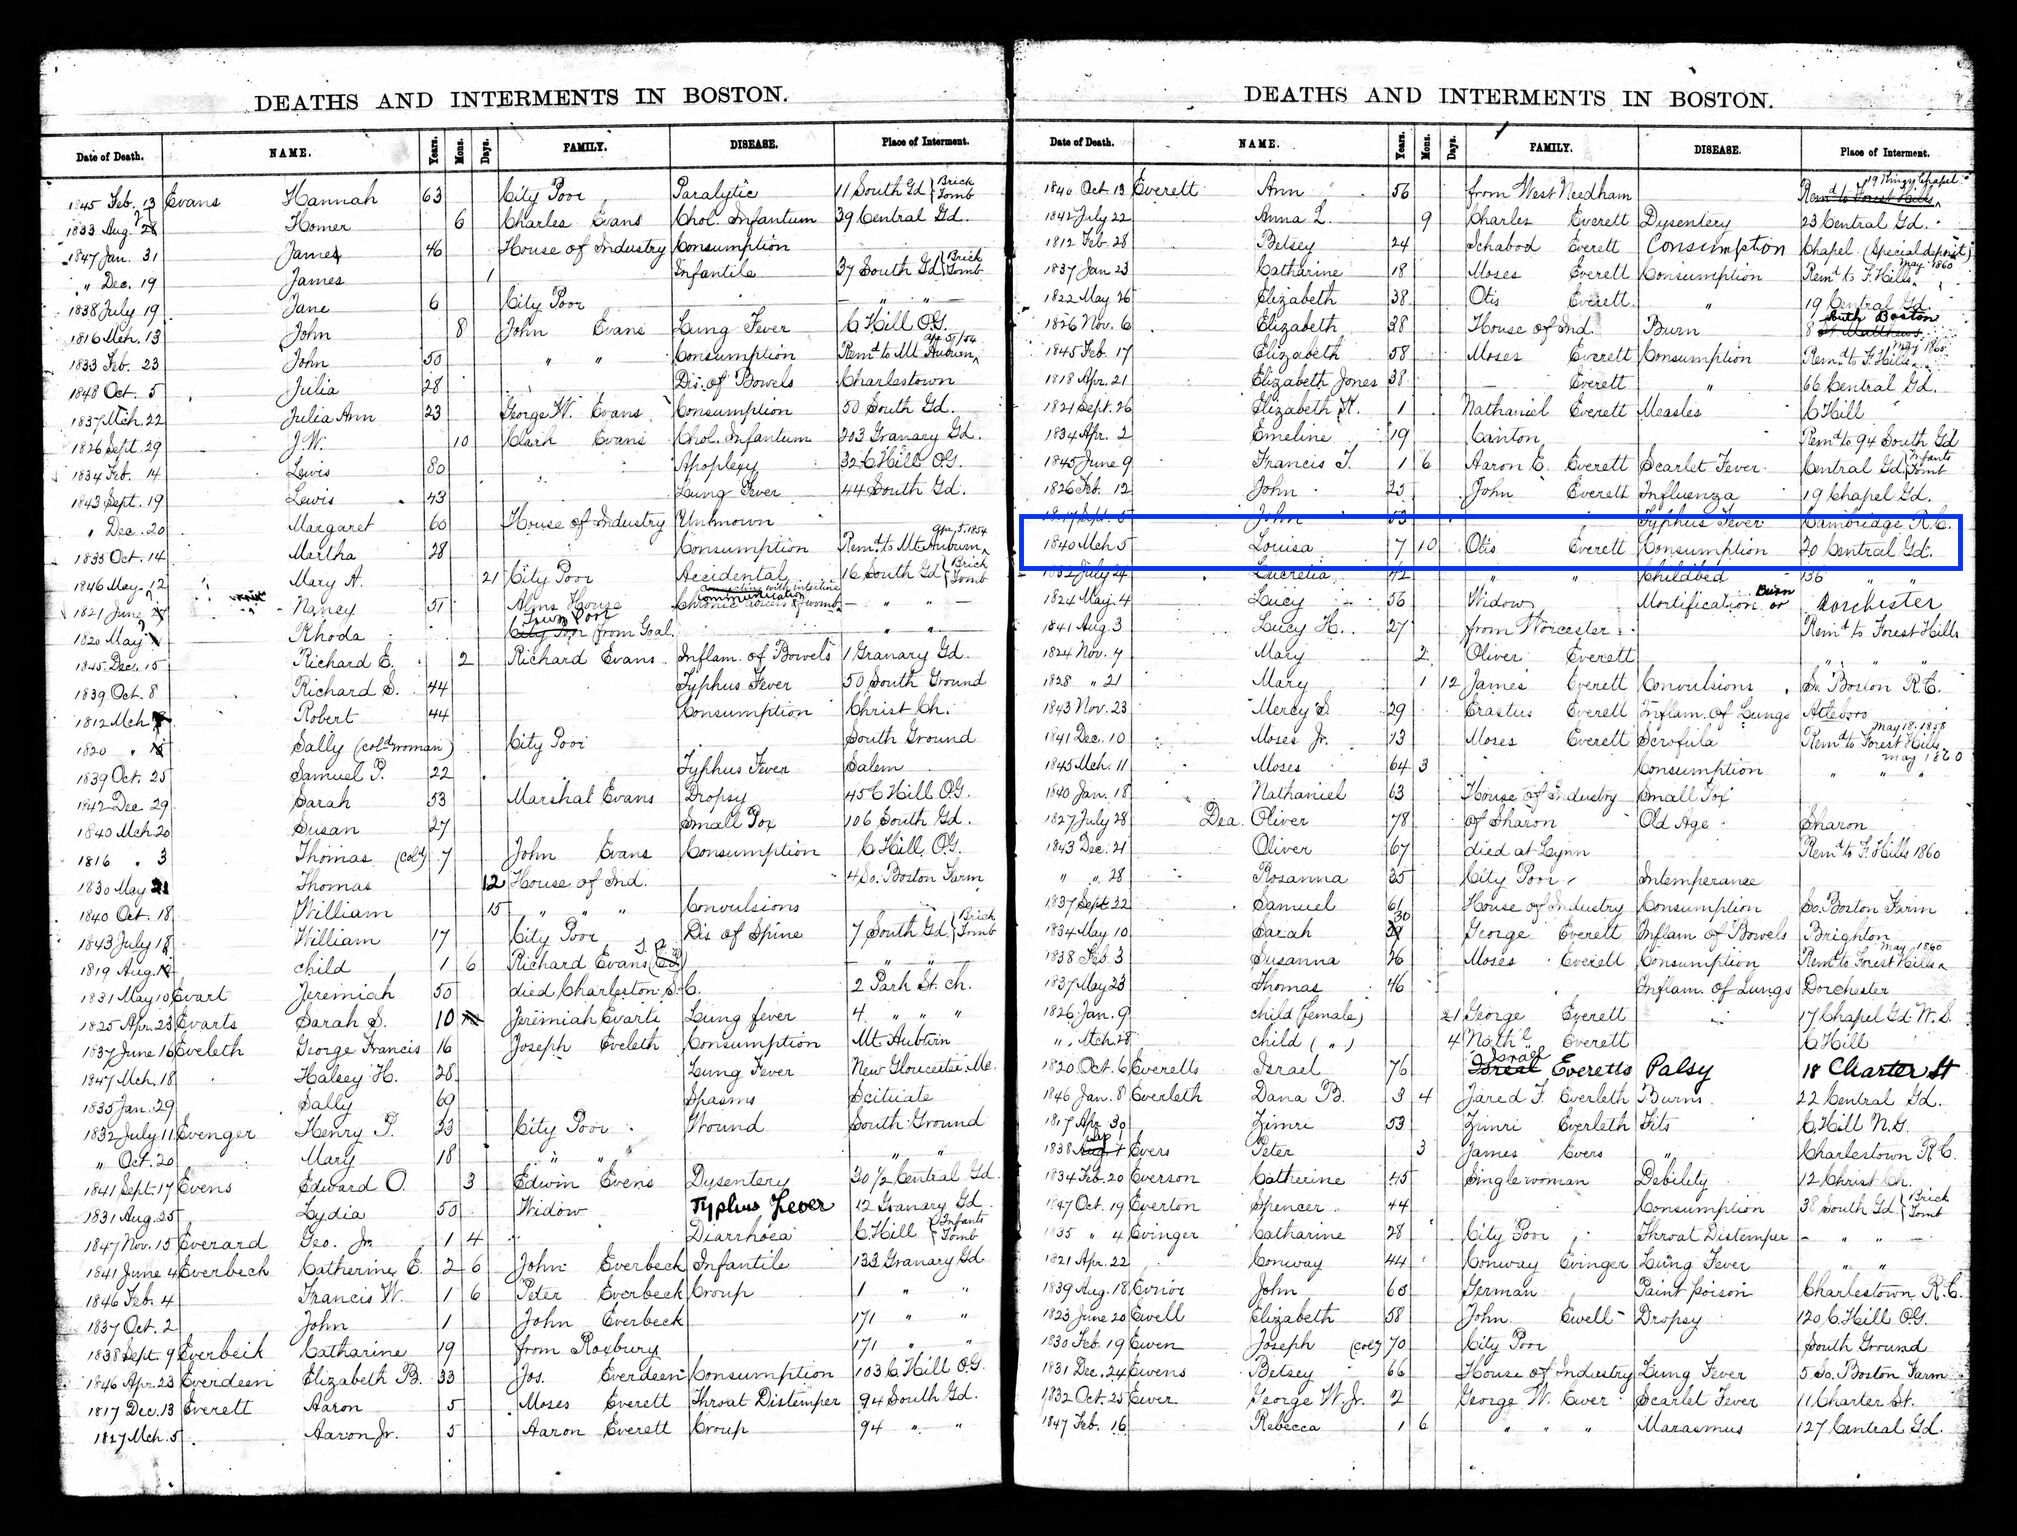 DEATHS AND INTERMENTS IN BOSTON.
Date of Death. NAME. Years. Mons. Days. FAMILY. DISEASE. Place of Interment.
1845 Feb. 13 Evans Hannah 63 City Poor Paralytic 11 South Gd {Brick Tomb
1833 Aug. Homer 6 Charles Evans Chol. Infantum 39 Central Gd.
1847 Jan. 31 James 46 House of Industry Consumption
" Dec. 19 James 1 Infantile 37 South Gd {Brick Tomb
1838 July 19 Jane 6 City Poor — " " —
1816 Mch. 13 John 8 John Evans Lung Fever C Hill O.G.
1833 Feb. 23 John 50 " " Consumption Remd. to Mt Auburn
1848 Oct. 5 Julia 28 Dis. of Bowels Charlestown
1837 Mch. 22 Julia Ann 23 George W. Evans Consumption 50 South Gd.
1826 Sept. 29 J. W. 10 Clark Evans Chol. Infantum 203 Granary Gd.
1834 Feb. 14 Lewis 80 Apoplexy 32 C Hill O.G.
1843 Sept. 19 Lewis 43 Lung Fever 44 South Gd.
" Dec. 20 Margaret 60 House of Industry Unknown
1835 Oct. 14 Martha 28 Consumption Remd. to Mt Auburn Apr. 5. 1854
1846 May 12 Mary A. 21 City Poor Accidental 16 South Gd {Brick Tomb
1821 June Nancy 51 Alms House Chronic — " " —
1820 May Rhoda City Poor from Goal. " "
1845 Dec. 15 Richard E. 2 Richard Evans Inflam. of Bowels 1 Granary Gd.
1839 Oct. 8 Richard S. 44 Typhus Fever 50 South Ground
1812 Mch. Robert 44 Consumption Christ Ch.
1820 " Sally (cold woman) City Poor South Ground
1839 Oct. 25 Samuel P. 22 Typhus Fever Salem
1842 Dec 29 Sarah 53 Marshal Evans Dropsy 45 C Hill O.G.
1840 Mch. 20 Susan 27 Small Pox 106 South Gd.
1816 " 3 Thomas (cold) 7 John Evans Consumption C Hill O.G.
1830 May 21 Thomas 12 House of Ind. 4 So. Boston Farm
1840 Oct. 18 William 15 " " " Convulsions
1843 July 18 William 17 City Poor Dis of Spine 7 South Gd. {Brick Tomb
1819 Aug. child 1 6 Richard Evans — " " —
1831 May 10 Evart Jeremiah 50 died Charleston S.C. 2 Park St. Ch.
1825 Apr. 23 Evarts Sarah S. 10 Jeremiah Evarts Lung fever 4 " " "
1837 June 16 Eveleth George Francis 16 Joseph Eveleth Consumption Mt Auburn
1847 Mch. 18 Halsey H. 28 Lung Fever New Gloucester Me.
1835 Jan. 29 Sally 69 Spasms Scituate
1832 July 11 Evenger Henry P. 33 City Poor Wound South Ground
" Oct. 20 Mary 18 " " " "
1841 Sept. 17 Evens Edward O. 3 Edwin Evens Dysentery 30 1/2 Central Gd.
1831 Aug. 25 Lydia 50 Widow Typhus Fever 12 Granary Gd
1847 Nov. 15 Everard Geo. Jr. 1 4 Diarrhoea C Hill {Infants Tomb
1841 June 4 Everbeck Catherine E. 2 6 John Everbeck Infantile 133 Granary Gd
1846 Feb. 4 Francis W. 1 6 Peter Everbeck Croup 1 " "
1837 Oct. 2 John 1 John Everbeck 171 " "
1838 Sept. 9 Everbeik Catharine 19 from Roxbury 171 "
1846 Apr. 23 Everdeen Elizabeth B. 33 Jos. Everdeen Consumption 103 C Hill O.G.
1817 Dec. 13 Everett Aaron 5 Moses Everett Throat Distemper 94 South Gd.
1827 Mch. 5 Aaron Jr. 5 Aaron Everett Croup 94 " "
DEATHS AND INTERMENTS IN BOSTON.
Date of Death. NAME. Years. Mons. Days. FAMILY. DISEASE. Place of Interment.
1840 Oct. 13 Everett Ann 56 from West Needham Remd. to Forest Hills
1842 July 22 Anna L. 9 Charles Everett Dysentery 23 Central Gd.
1812 Feb. 28 Betsey 24 Ichabod Everett Consumption Chapel (Special deposit)
1837 Jan 23 Catharine 18 Moses Everett Consumption Remd. to F. Hills May 1860
1822 May 26 Elizabeth 38 Otis Everett " 19 Central Gd.
1826 Nov. 6 Elizabeth 38 House of Ind. Burn 8 South Boston
1845 Feb. 17 Elizabeth 58 Moses Everett Consumption Remd. to F. Hills May 1860
1818 Apr. 21 Elizabeth Jones 38 — Everett " 66 Central Gd.
1821 Sept. 26 Elizabeth K. 1 Nathaniel Everett Measles C Hill
1834 Apr. 2 Emeline 19 Canton Remd. to 94 South Gd
1845 June 9 Francis T. 1 6 Aaron E. Everett Scarlet Fever Central Gd {Infants Tomb
1826 Feb. 12 John John Everett Influenza 19 Chapel Gd.
1847 Sept. 5 John 53 Typhus Fever Cambridge R.C.
1840 Mch. 5 Louisa 7 10 Otis Everett Consumption 20 Central Gd.
1832 July 24 Lucretia 42 " " Childbed 136 " "
1824 May 4 Lucy 56 Widow Mortification or Burn Dorchester
1841 Aug. 3 Lucy H. 27 from Worcester Remd. to Forest Hills
1824 Nov. 4 Mary 2 Oliver Everett " " "
1828 " 21 Mary 1 12 James Everett Convulsions So. Boston R.C.
1843 Nov. 23 Mercy S. 29 Erastus Everett Inflam. of Lungs Attleboro
1841 Dec. 10 Moses Jr. 13 Moses Everett Scrofula Remd. to Forest Hills May 18. 1858
1845 Mch. 11 Moses 64 3 Consumption " " " May 1860
1840 Jan. 18 Nathaniel 63 House of Industry Small Pox
1827 July 28 Dea. Oliver 78 of Sharon Old Age Sharon
1843 Dec. 21 Oliver 67 died at Lynn Remd. to F. Hills 1860
" " 28 Rosanna 35 City Poor Intemperance
1837 Sept. 22 Samuel 61 House of Industry Consumption So. Boston Farm
1834 May 10 Sarah 30 George Everett Inflam of Bowels Brighton
1838 Feb. 3 Susanna 26 Moses Everett Consumption Remd. to Forest Hills May 1860
1837 May 23 Thomas 46 Inflam. of Lungs Dorchester
1826 Jan. 9 child (female) 21 George Everett 17 Chapel Gd. W.S.
" Mch. 28 child ( " ) 4 Nathl. Everett C Hill
1820 Oct. 6 Everetts Israel 76 Israel Everetts Palsy 18 Charter St
1846 Jan. 8 Everleth Dana B. 3 4 Jared F. Everleth Burns 22 Central Gd.
1817 Apr. 30 Zimri 53 Zimri Everleth Fits C Hill N.G.
1838 Sep 1 Evers Peter 3 James Evers " Charlestown R.C.
1834 Feb. 20 Everson Catherine 45 Singlewoman Debility 12 Christ Ch.
1847 Oct. 19 Everton Spencer 44 Consumption 38 South Gd {Brick Tomb
1835 " 4 Evinger Catharine 28 City Poor Throat Distemper — " " —
1821 Apr. 22 Conway 44 Conway Evinger Lung Fever " "
1839 Aug. 18 Evrior John 60 German Paint poison Charlestown R.C.
1823 June 20 Ewell Elizabeth 58 John Ewell Dropsy 120 C. Hill O.G.
1830 Feb. 19 Ewen Joseph (cold) 70 City Poor South Ground
1831 Dec. 24 Ewens Betsey 66 House of Industry Lung Fever 5 So. Boston Farm
1832 Oct. 25 Ewer George W. Jr. 2 George W. Ewer Scarlet Fever 11 Charter St.
1847 Feb. 16 Rebecca 1 6 " " " Marasmus 127 Central Gd.